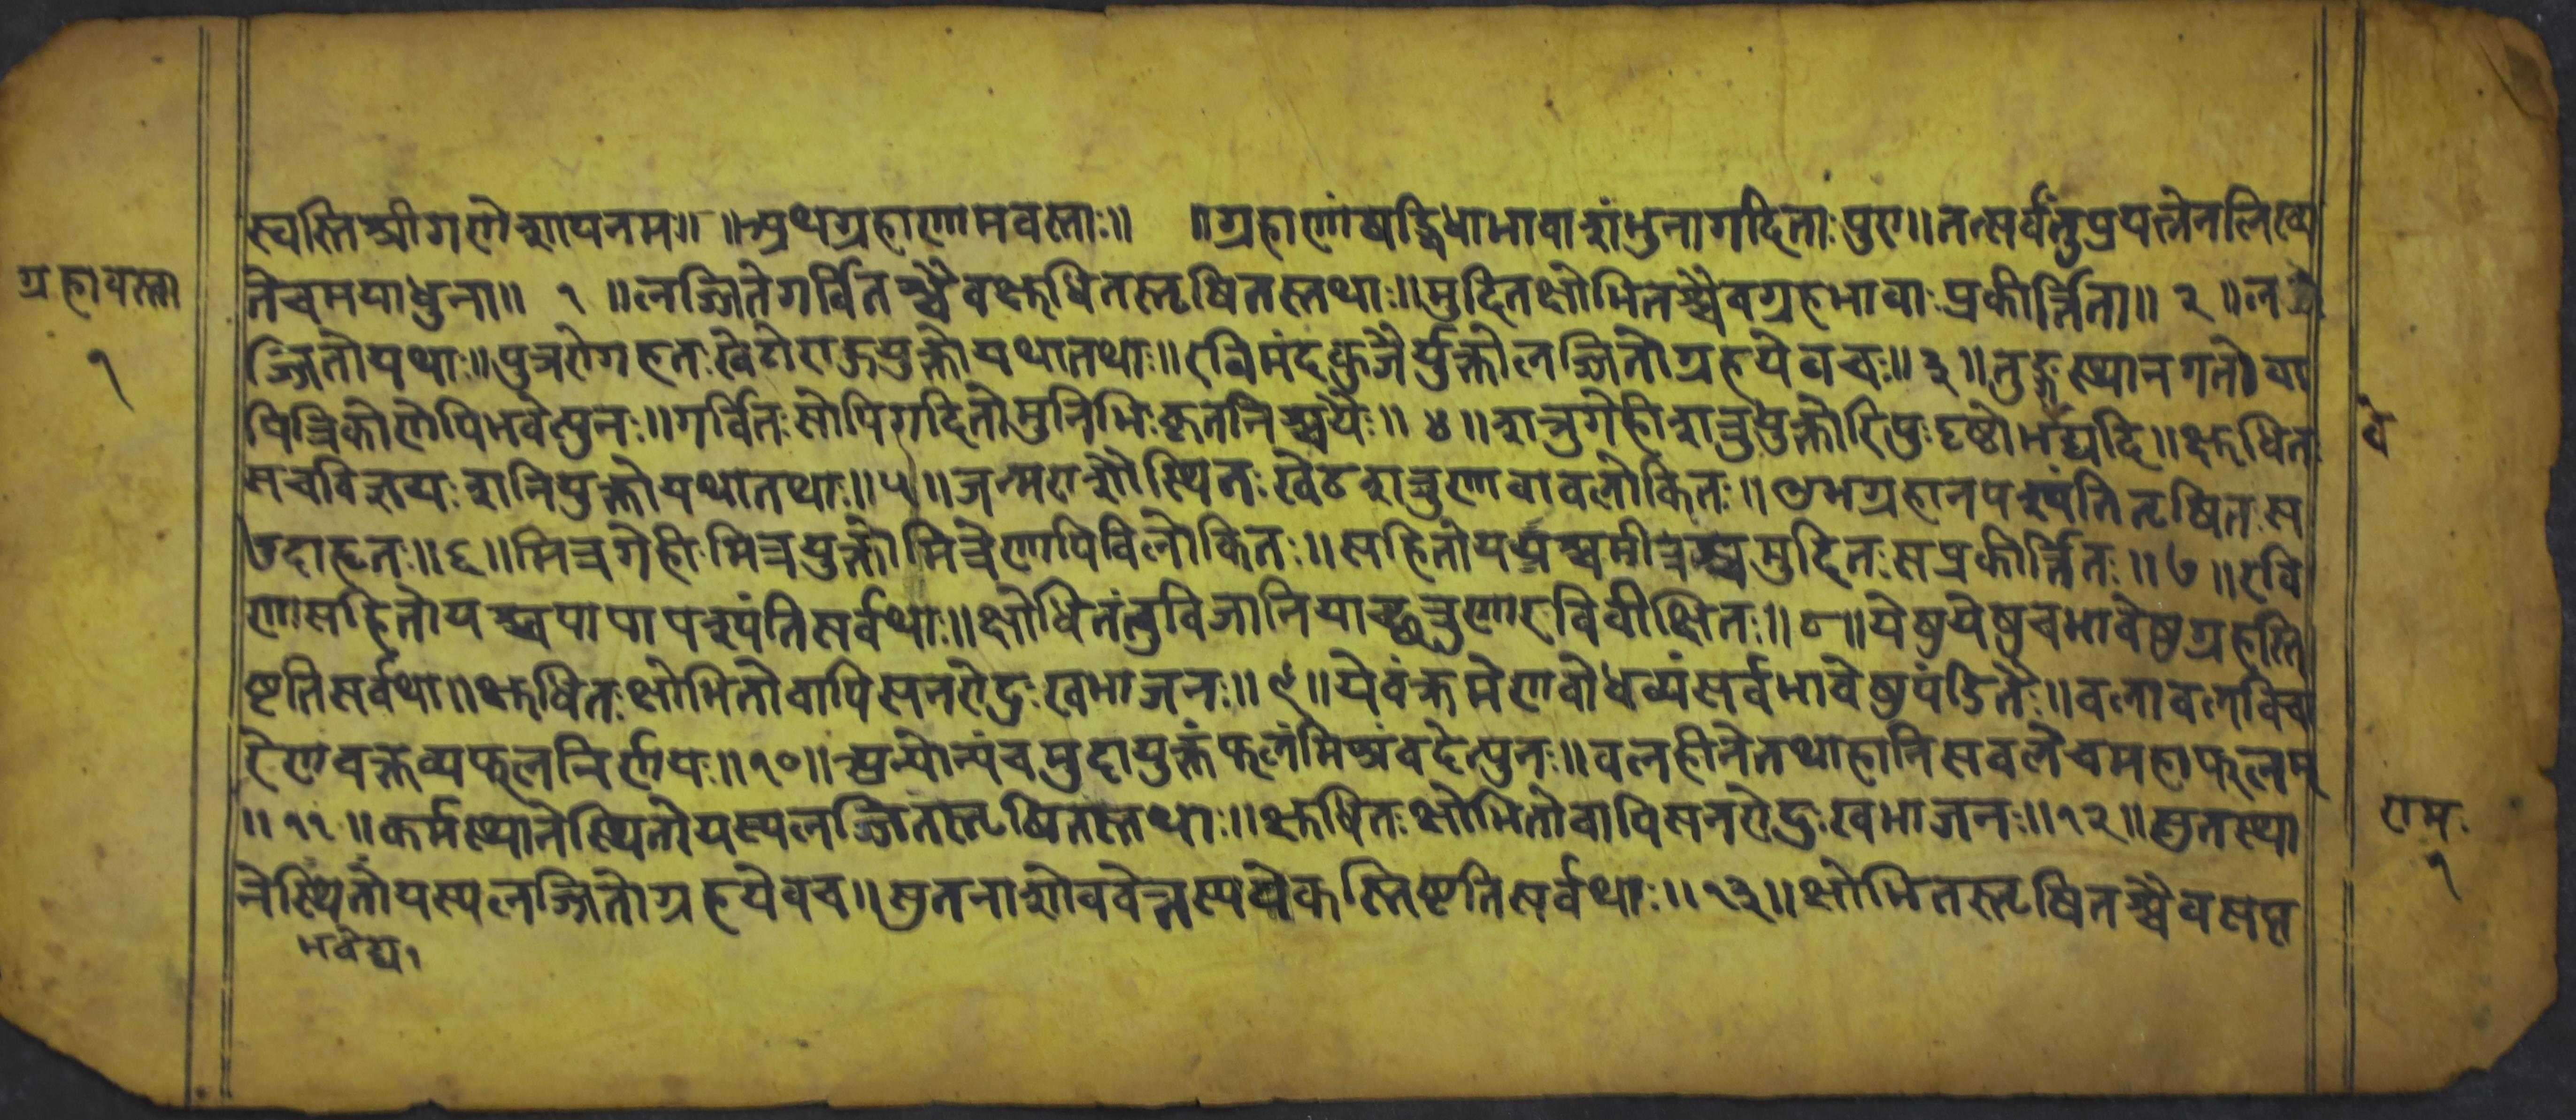 स्वस्तिश्रीगणेशायनमः॥ ॥अथग्रहाणामवस्ताः॥ ॥ग्रहाणांषड्विधाभावाशंभुनागदिताःपुरा॥तत्सर्वंतुप्रयत्नेनलिख्य
ग्रहावस्ता
तेचमयाधुना॥ १ ॥लज्जितेगर्वितश्चैवक्षुधितस्तृषितस्तथाः॥मुदितक्षोभितश्चैवग्रहभावाःप्रकीर्त्तिता॥ २ ॥ल
१
ज्जितोयथाः॥पुत्ररोगहतःखेटोराऊयुक्तोयथातथाः॥रविमंदकुजैर्युक्तोलज्जितोग्रहयेवचः॥३॥तुङ्गस्थानगतोवा
पित्रिकोणेपिभवेत्पुनः॥गर्वितःसोपिगदितोमुनिभिःकृतनिश्चयैः॥ ४ ॥शत्रुगेहीशत्रुयुक्तोरिपुःदृष्टोर्भद्यदि॥क्षुधित
वे
सचविज्ञयःशनियुक्तोयथातथाः॥५॥जन्मराशौस्थितःखेटशत्रुणावावलोकितः॥शुभग्रहानपश्यंतितृषितःस
उदाहृतः॥६॥मित्रगेहीमित्रयुक्तोमित्रेणापिविलोकितः॥सहितोयश्चमीत्रश्चमुदितःसप्रकीर्त्तितः॥७॥रवि
णासहितोयश्चपापापश्यंतिसर्वथाः॥क्षोधितंतुविजानियाच्छत्रुणारविवीक्षितः॥८॥येषुयेषुचभावेषुग्रहस्ति
ष्टतिसर्वथा॥क्षुधितःक्षोभितोवापिसनरोदुःखभाजनः॥९॥येवंक्रमेणवोधव्यंसर्वभावेषुपंडितैः॥वलावलविचा
रेणवक्तव्यफलनिर्णयः॥१०॥अन्योन्यंचमुदायुक्तंफलंमिश्रंवदेत्पुनः॥वलहीनेतथाहानिसवलेचमहाफलम्
॥११॥कर्मस्थानेस्थितोयस्यलज्जितस्तृषितस्तथाः॥क्षुधितःक्षोभितोवापिसनरोदुःखभाजनः॥१२॥सुतस्था
रामः
१
नेस्थितोयस्यलज्जितोग्रहयेवच॥सुतनाशोववेत्तस्ययेकस्तिष्टतिसर्वथाः॥१३॥क्षोभितस्तृषितश्चैवसप्त
भवेद्य१